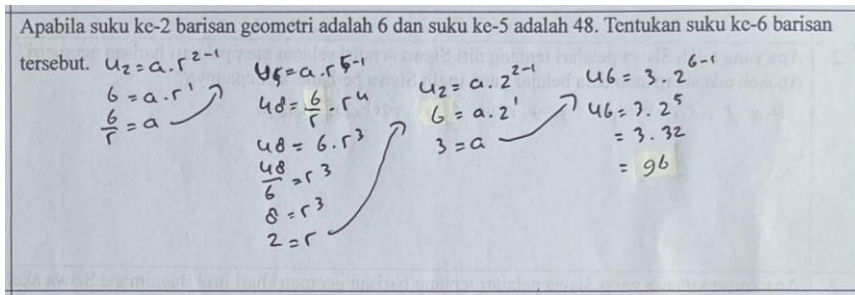 Apabila suku ke-2 barisan geometri adalah 6 dan suku ke-5 adalah 48. Tentukan suku ke-6 barisan
tersebut.
U2 = a.r²⁻¹
6 = a.r¹
6/r = a
U5 = a.r⁵⁻¹
48 = 6/r . r⁴
48 = 6.r³
48/6 = r³
8 = r³
2 = r
U2 = a.2²⁻¹
6 = a.2¹
3 = a
U6 = 3.2⁶⁻¹
U6 = 3.2⁵
= 3.32
= 96